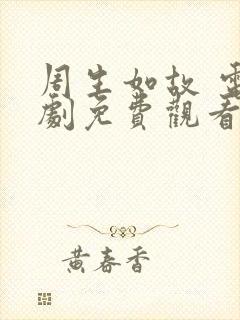 周生如故 電
劇免費觀看
黃春香